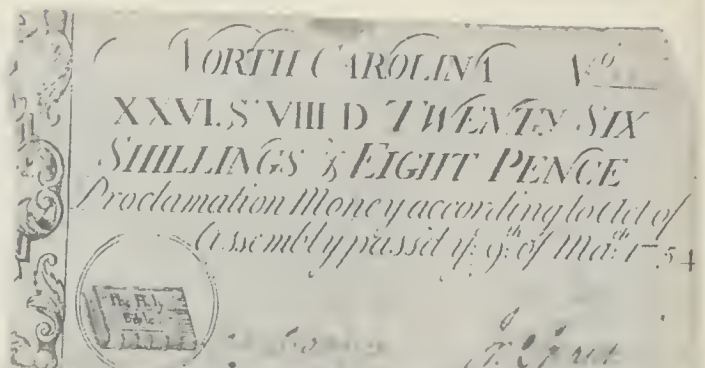 NORTH CAROLINA No
XXVI.S VIII D TWENTY SIX
SHILLINGS & EIGHT PENCE
Proclamation Money according to Act of
Assembly pass'd ye 9th of Mar.ch 1754
The Holy
Bible